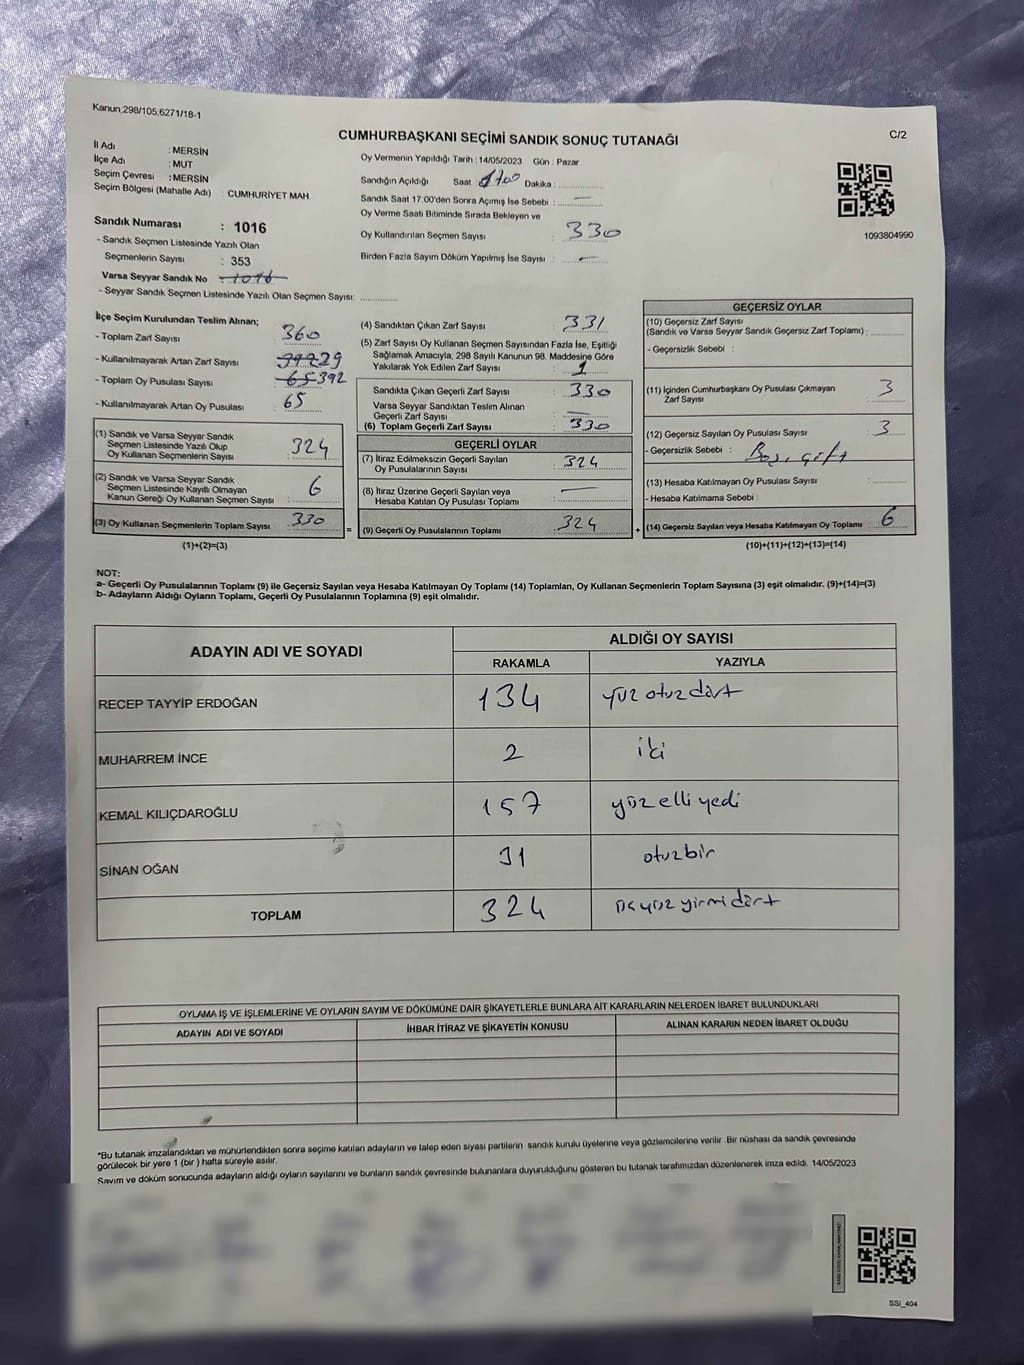 Kanun,298/105,6271/18-1
CUMHURBAŞKANI SEÇİMİ SANDIK SONUÇ TUTANAĞI
C/2
İl Adı : MERSİN
İlçe Adı : MUT
Seçim Çevresi : MERSİN
Seçim Bölgesi (Mahalle Adı) : CUMHURİYET MAH.
Sandık Numarası : 1016
- Sandık Seçmen Listesinde Yazılı Olan
Seçmenlerin Sayısı : 353
Varsa Seyyar Sandık No : 1016
- Seyyar Sandık Seçmen Listesinde Yazılı Olan Seçmen Sayısı: ............
Oy Vermenin Yapıldığı Tarih : 14/05/2023 Gün : Pazar
Sandığın Açıldığı Saat : 1700 Dakika : ............
Sandık Saat 17:00'den Sonra Açımış İse Sebebi : —
Oy Verme Saati Bitiminde Sırada Bekleyen ve
Oy Kullandırılan Seçmen Sayısı : 330
Birden Fazla Sayım Döküm Yapılmış İse Sayısı : —
1093804990
İlçe Seçim Kurulundan Teslim Alınan;
- Toplam Zarf Sayısı : 360
- Kullanılmayarak Artan Zarf Sayısı : 29
- Toplam Oy Pusulası Sayısı : 65 392
- Kullanılmayarak Artan Oy Pusulası : 65
(1) Sandık ve Varsa Seyyar Sandık
Seçmen Listesinde Yazılı Olup
Oy Kullanan Seçmenlerin Sayısı : 324
(2) Sandık ve Varsa Seyyar Sandık
Seçmen Listesinde Kayıtlı Olmayan
Kanun Gereği Oy Kullanan Seçmen Sayısı : 6
(3) Oy Kullanan Seçmenlerin Toplam Sayısı : 330
(1)+(2)=(3)
(4) Sandıktan Çıkan Zarf Sayısı : 331
(5) Zarf Sayısı Oy Kullanan Seçmen Sayısından Fazla İse, Eşitliği
Sağlamak Amacıyla, 298 Sayılı Kanunun 98. Maddesine Göre
Yakılarak Yok Edilen Zarf Sayısı : 1
Sandıkta Çıkan Geçerli Zarf Sayısı : 330
Varsa Seyyar Sandıktan Teslim Alınan
Geçerli Zarf Sayısı : —
(6) Toplam Geçerli Zarf Sayısı : 330
GEÇERLİ OYLAR
(7) İtiraz Edilmeksizin Geçerli Sayılan
Oy Pusulasının Sayısı : 324
(8) İtiraz Üzerine Geçerli Sayılan veya
Hesaba Katılan Oy Pusulası Toplamı : —
= (9) Geçerli Oy Pusulalarının Toplamı : 324 +
GEÇERSİZ OYLAR
(10) Geçersiz Zarf Sayısı
(Sandık ve Varsa Seyyar Sandık Geçersiz Zarf Toplamı) : ............
- Geçersizlik Sebebi :
(11) İçinden Cumhurbaşkanı Oy Pusulası Çıkmayan
Zarf Sayısı : 3
(12) Geçersiz Sayılan Oy Pusulası Sayısı : 3
- Geçersizlik Sebebi : Boş, çift
(13) Hesaba Katılmayan Oy Pusulası Sayısı : ............
- Hesaba Katılmama Sebebi :
(14) Geçersiz Sayılan veya Hesaba Katılmayan Oy Toplamı : 6
(10)+(11)+(12)+(13)=(14)
NOT:
a- Geçerli Oy Pusulalarının Toplamı (9) ile Geçersiz Sayılan veya Hesaba Katılmayan Oy Toplamı (14) Toplamları, Oy Kullanan Seçmenlerin Toplam Sayısına (3) eşit olmalıdır. (9)+(14)=(3)
b- Adayların Aldığı Oyların Toplamı, Geçerli Oy Pusulalarının Toplamına (9) eşit olmalıdır.
ADAYIN ADI VE SOYADI ALDIĞI OY SAYISI
RAKAMLA YAZIYLA
RECEP TAYYİP ERDOĞAN 134 yüz otuz dört
MUHARREM İNCE 2 iki
KEMAL KILIÇDAROĞLU 157 yüz elli yedi
SİNAN OĞAN 31 otuzbir
TOPLAM 324 üçyüz yirmi dört
OYLAMA İŞ VE İŞLEMLERİNE VE OYLARIN SAYIM VE DÖKÜMÜNE DAİR ŞİKAYETLERLE BUNLARA AİT KARARLARIN NELERDEN İBARET BULUNDUKLARI
ADAYIN ADI VE SOYADI İHBAR İTİRAZ VE ŞİKAYETİN KONUSU ALINAN KARARIN NEDEN İBARET OLDUĞU
*Bu tutanak imzalandıktan ve mühürlendikten sonra seçime katılan adayların ve talep eden siyasi partilerin sandık kurulu üyelerine veya gözlemcilerine verilir. Bir nüshası da sandık çevresinde
görülecek bir yere 1 (bir) hafta süreyle asılır.
Sayım ve döküm sonucunda adayların aldığı oyların sayılarını ve bunların sandık çevresinde bulunanlara duyurulduğunu gösteren bu tutanak tarafımızdan düzenlenerek imza edildi. 14/05/2023
SSİ_404